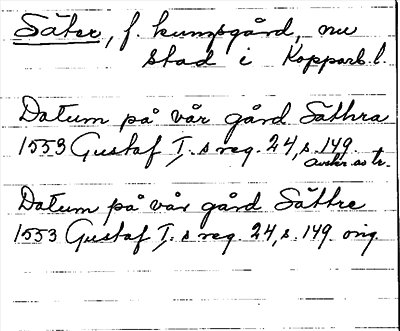 Säter, f. kungsgård, nu
stad i Kopparb. l.
Datum på vår gård Säthra
1553 Gustaf I. s reg. 24, s. 149.
avskr. as tr.
Datum på vår gård Säthre
1553 Gustaf I. s reg. 24, s. 149. orig.